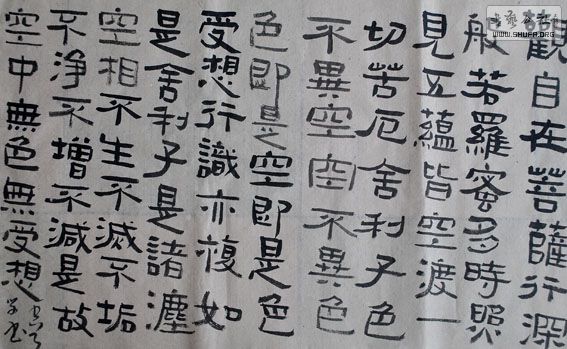 觀自在菩薩行深
般若羅蜜多時照
見五蘊皆空渡一
切苦厄舍利子色
不異空空不異色
色即是空即是色
受想行識亦複如
是舍利子是諸灋
空相不生不滅不垢
不淨不增不減是故
空中無色無受想
WWW.SHUFA.ORG